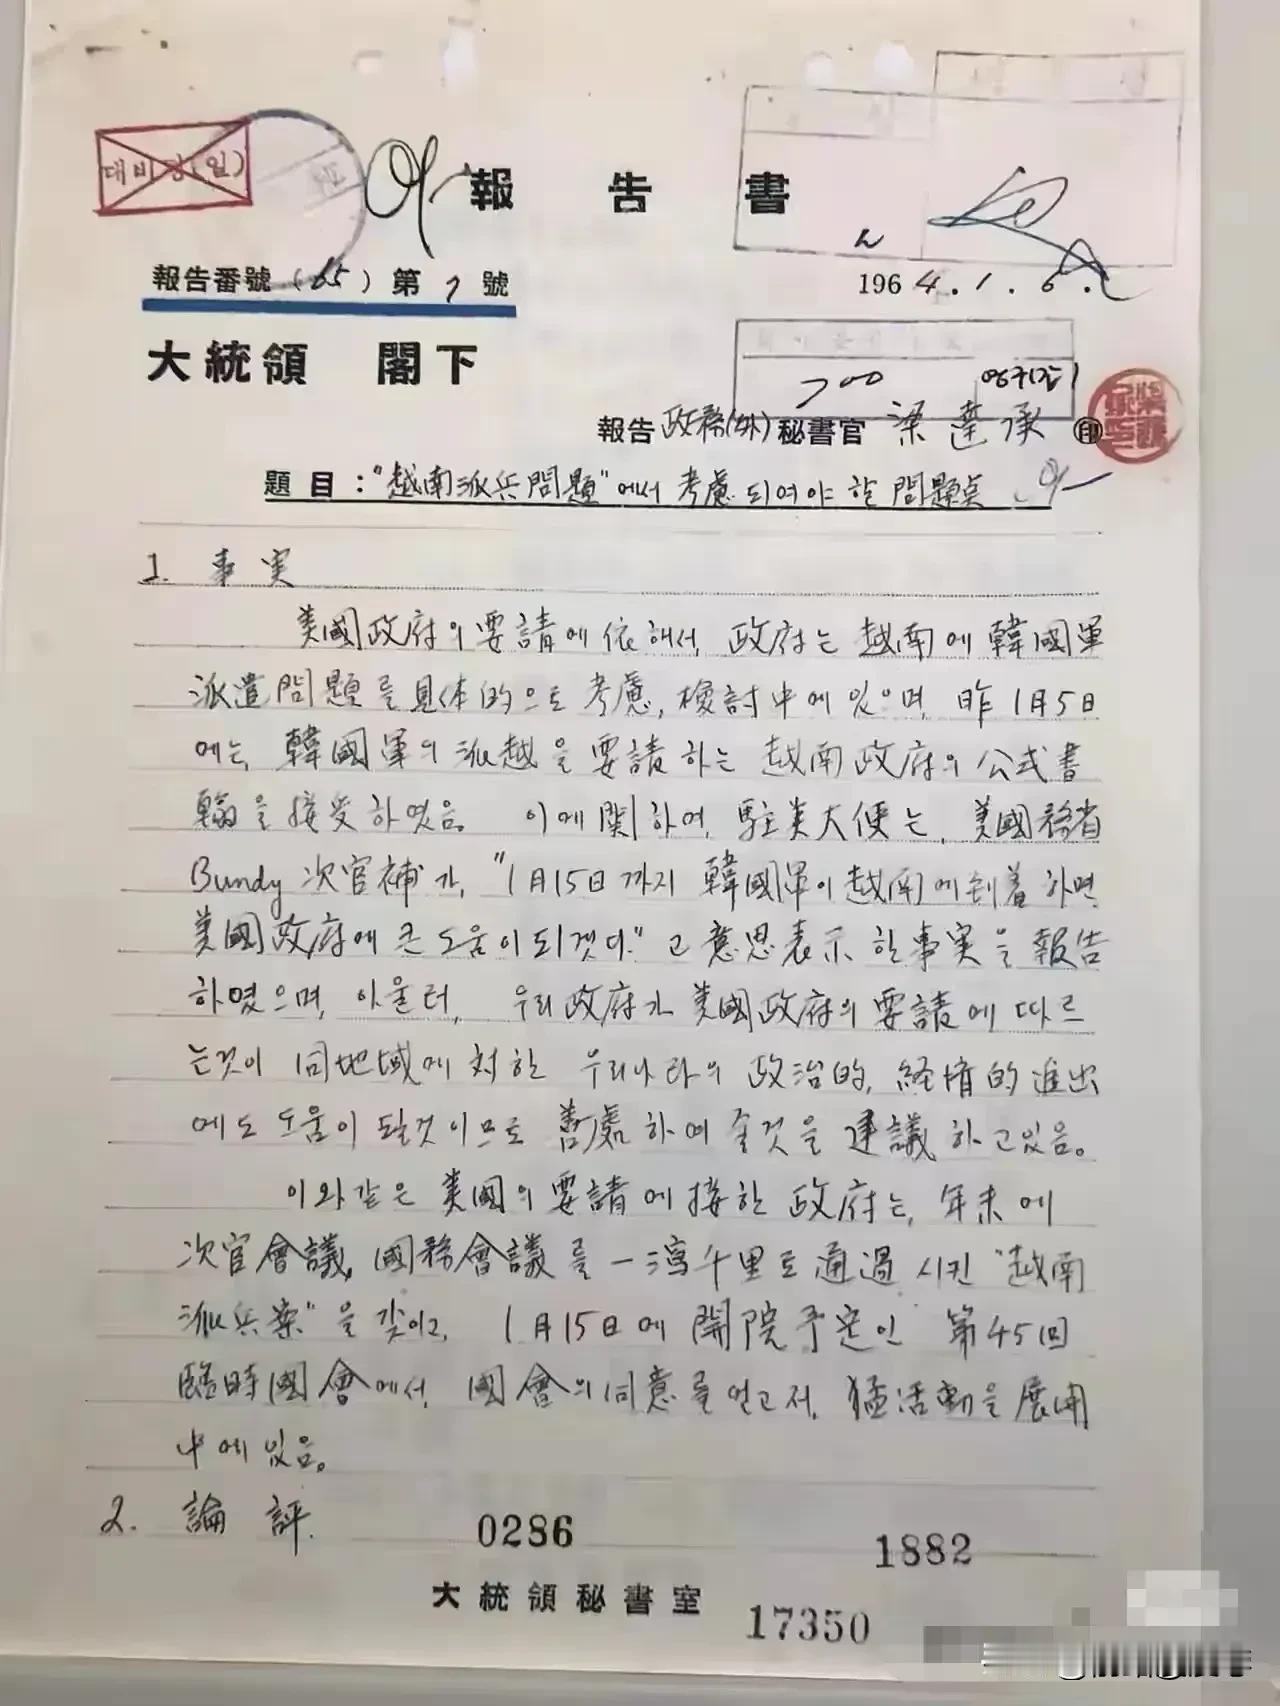 대비강(일)
報告書
報告番號 (65) 第 7 號
1964.1.6.
大統領 閣下
報告 政務(外) 秘書官 梁達承 印
題目: "越南派兵問題"에서 考慮되여야 할 問題点
1. 事実
美國政府의 要請에 依해서, 政府는 越南에 韓國軍
派遣問題를 具体的으로 考慮, 檢討中에 있으며, 昨 1月5日
에는, 韓國軍의 派越을 要請하는 越南政府의 公式書
翰을 接受하였음。 이에 関하여, 駐美大使는, 美國務省
Bundy 次官補가, "1月15日까지 韓國軍이 越南에 到着하면,
美國政府에 큰 도움이 되겠다."고 意思表示한 事実을 報告
하였으며, 아울러, 우리 政府가 美國政府의 要請에 따르
는것이 同地域에 対한 우리나라의 政治的, 経済的 進出
에도 도움이 될것이므로 善處하여 줄것을 建議하고있음。
이와같은 美國의 要請에 接한 政府는, 年末에
次官會議, 國務會議를 一瀉千里로 通過시킨 "越南
派兵案"을 갖이고, 1月15日에 開院予定인 第45回
臨時國會에서, 國會의 同意를 얻고저, 猛活動을 展開
中에 있음。
2. 論評
0286
1882
大統領秘書室
17350